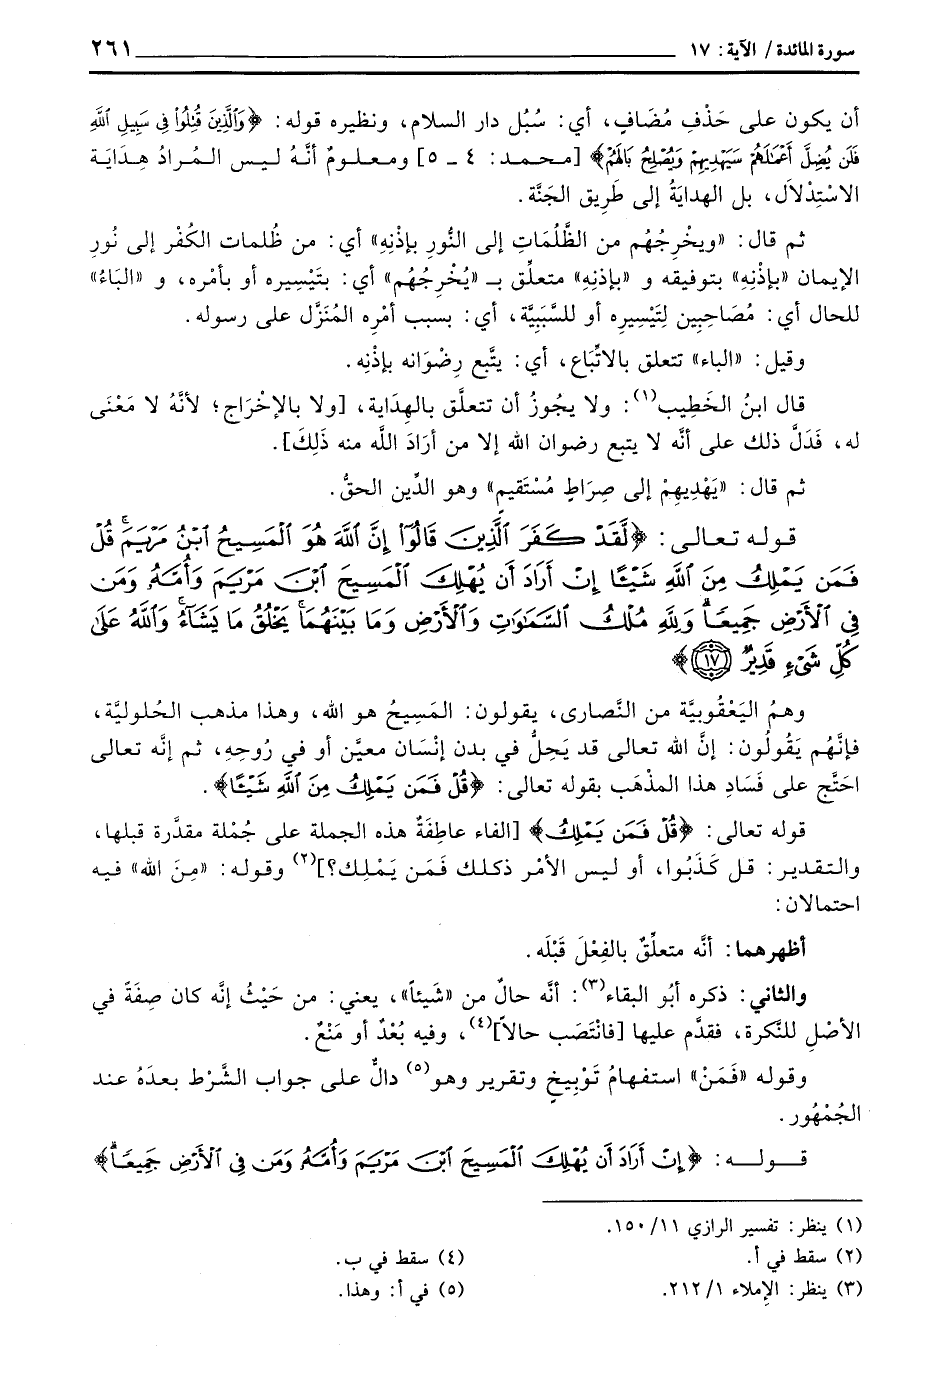 سورة المائدة / الآية: ١٧ ٢٦١
أن يكون على حَذْفِ مُضَافٍ، أي: سُبُل دار السلام، ونظيره قوله: ﴿وَٱلَّذِينَ قُتِلُوا۟ فِى سَبِيلِ ٱللَّهِ
فَلَن يُضِلَّ أَعْمَٰلَهُمْ سَيَهْدِيهِمْ وَيُصْلِحُ بَالَهُمْ﴾ [محمد: ٤ ـ ٥] ومعلومٌ أنَّهُ ليس المُرادُ هِدَايَة
الاسْتِدْلاَل، بل الهدايَةُ إلى طَرِيق الجَنَّة.
ثم قال: «ويخْرِجُهُم من الظُّلُمَاتِ إلى النُّورِ بإذْنِهِ» أي: من ظُلمات الكُفْر إلى نُورِ
الإيمان «بإذْنِهِ» بتوفيقه و «بإذنِهِ» متعلِّق بـ «يُخْرِجُهُم» أي: بتَيْسِيره أو بأمْره، و «البَاءُ»
للحال أي: مُصَاحِبِين لِتَيْسِيرِه أو للسَّبَبِيَّة، أي: بسبب أمْرِه المُنَزَّل على رسوله.
وقيل: «الباء» تتعلق بالاتِّبَاع، أي: يتَّبع رِضْوَانه بإذْنِه.
قال ابنُ الخَطِيب(١): ولا يجُوزُ أن تتعلَّق بالهِدَاية، [ولا بالإخْرَاج؛ لأنَّهُ لا مَعْنَى
له، فَدَلَّ ذلك على أنَّه لا يتبع رضوان الله إلا من أرَادَ اللَّه منه ذَلِكَ].
ثم قال: «يَهْدِيهِمْ إلى صِرَاطٍ مُسْتَقيم» وهو الدِّين الحقُّ.
قوله تعالى: ﴿لَّقَدْ كَفَرَ ٱلَّذِينَ قَالُوٓا۟ إِنَّ ٱللَّهَ هُوَ ٱلْمَسِيحُ ٱبْنُ مَرْيَمَ ۚ قُلْ
فَمَن يَمْلِكُ مِنَ ٱللَّهِ شَيْـًٔا إِنْ أَرَادَ أَن يُهْلِكَ ٱلْمَسِيحَ ٱبْنَ مَرْيَمَ وَأُمَّهُۥ وَمَن
فِى ٱلْأَرْضِ جَمِيعًا ۗ وَلِلَّهِ مُلْكُ ٱلسَّمَٰوَٰتِ وَٱلْأَرْضِ وَمَا بَيْنَهُمَا ۚ يَخْلُقُ مَا يَشَآءُ ۚ وَٱللَّهُ عَلَىٰ
كُلِّ شَىْءٍ قَدِيرٌ ١٧﴾
وهمُ اليَعْقُوبيَّة من النَّصارى، يقولون: المَسِيحُ هو الله، وهذا مذهب الحُلولية،
فإنَّهُم يَقُولُون: إنَّ الله تعالى قد يَحِلُّ في بدن إنْسَان معيَّن أو في رُوحِهِ، ثم إنَّه تعالى
احتَّج على فَسَادِ هذا المذْهَب بقوله تعالى: ﴿قُلْ فَمَن يَمْلِكُ مِنَ ٱللَّهِ شَيْـًٔا﴾.
قوله تعالى: ﴿قُلْ فَمَن يَمْلِكُ﴾ [الفاء عاطِفَةٌ هذه الجملة على جُمْلة مقدَّرة قبلها،
والتقدير: قل كَذَبُوا، أو ليس الأمْر ذكلك فَمَن يَمْلِك؟](٢) وقوله: «مِنَ الله» فيه
احتمالان:
أظهرهما: أنَّه متعلِّقٌ بالفِعْلَ قَبْلَه.
والثاني: ذكره أبُو البقاء(٣): أنَّه حالٌ من «شَيئاً»، يعني: من حَيْثُ إنَّه كان صِفَةً في
الأصْلِ للنَّكرة، فقدَّم عليها [فانْتَصَب حالاً](٤)، وفيه بُعْدٌ أو مَنْعٌ.
وقوله «فَمَنْ» استفهامُ تَوْبِيخٍ وتقرير وهو(٥) دالٌّ على جواب الشَّرْط بعدَهُ عند
الجُمْهُور.
قوله: ﴿إِنْ أَرَادَ أَن يُهْلِكَ ٱلْمَسِيحَ ٱبْنَ مَرْيَمَ وَأُمَّهُۥ وَمَن فِى ٱلْأَرْضِ جَمِيعًا ۗ﴾
(١) ينظر: تفسير الرازي ١١/ ١٥٠.
(٢) سقط في أ. (٤) سقط في ب.
(٣) ينظر: الإملاء ١/ ٢١٢. (٥) في أ: وهذا.